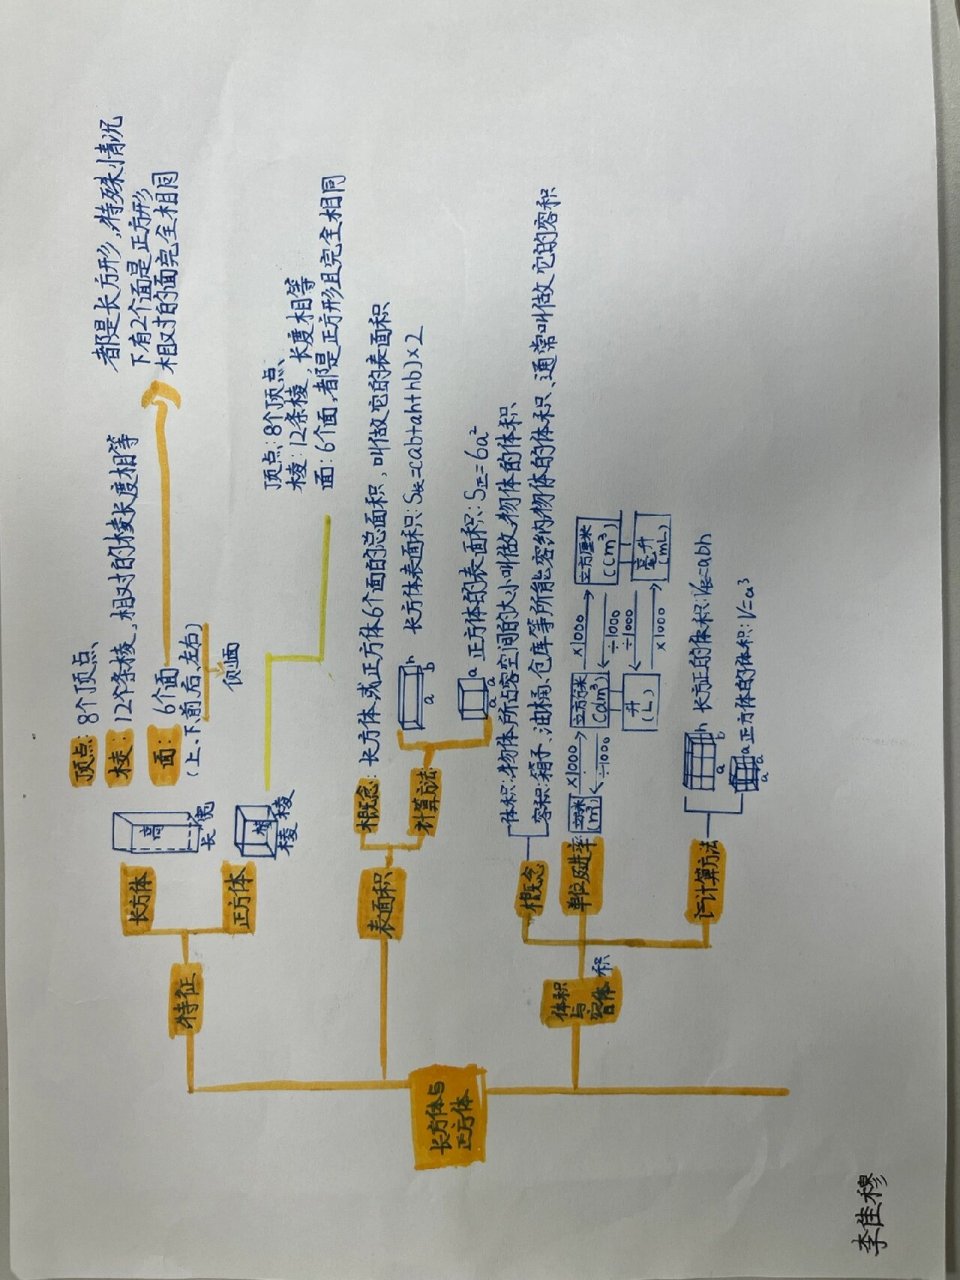 长方体与
正方体
特征
长方体
高
长
宽
顶点：8个顶点
棱：12个条棱，相对的棱长度相等
面：6个面
（上、下、前后、左右）
侧面
都是长方形，特殊情况
下有2个面是正方形
相对的面完全相同
正方体
棱
棱
棱
顶点：8个顶点
棱：12条棱，长度相等
面：6个面，都是正方形且完全相同
表面积
概念：长方体或正方体6个面的总面积，叫做它的表面积
计算方法：
a
b
h
长方体表面积：S长=(ab+ah+hb)×2
a
a
a
正方体的表面积：S正=6a²
体积
与
容体
积
概念
体积：物体所占容空间的大小叫做物体的体积
容积：箱子、油桶、仓库等所能容纳物体的体积，通常叫做它的容积
单位及进率
立方米
(m³)
×1000
÷1000
立方分米
(dm³)
×1000
÷1000
立方厘米
(cm³)
升
(L)
÷1000
×1000
毫升
(mL)
计算方法
a
b
h
长方正的体积：V长=abh
a
a
a
正方体的体积：V=a³
李佳穆